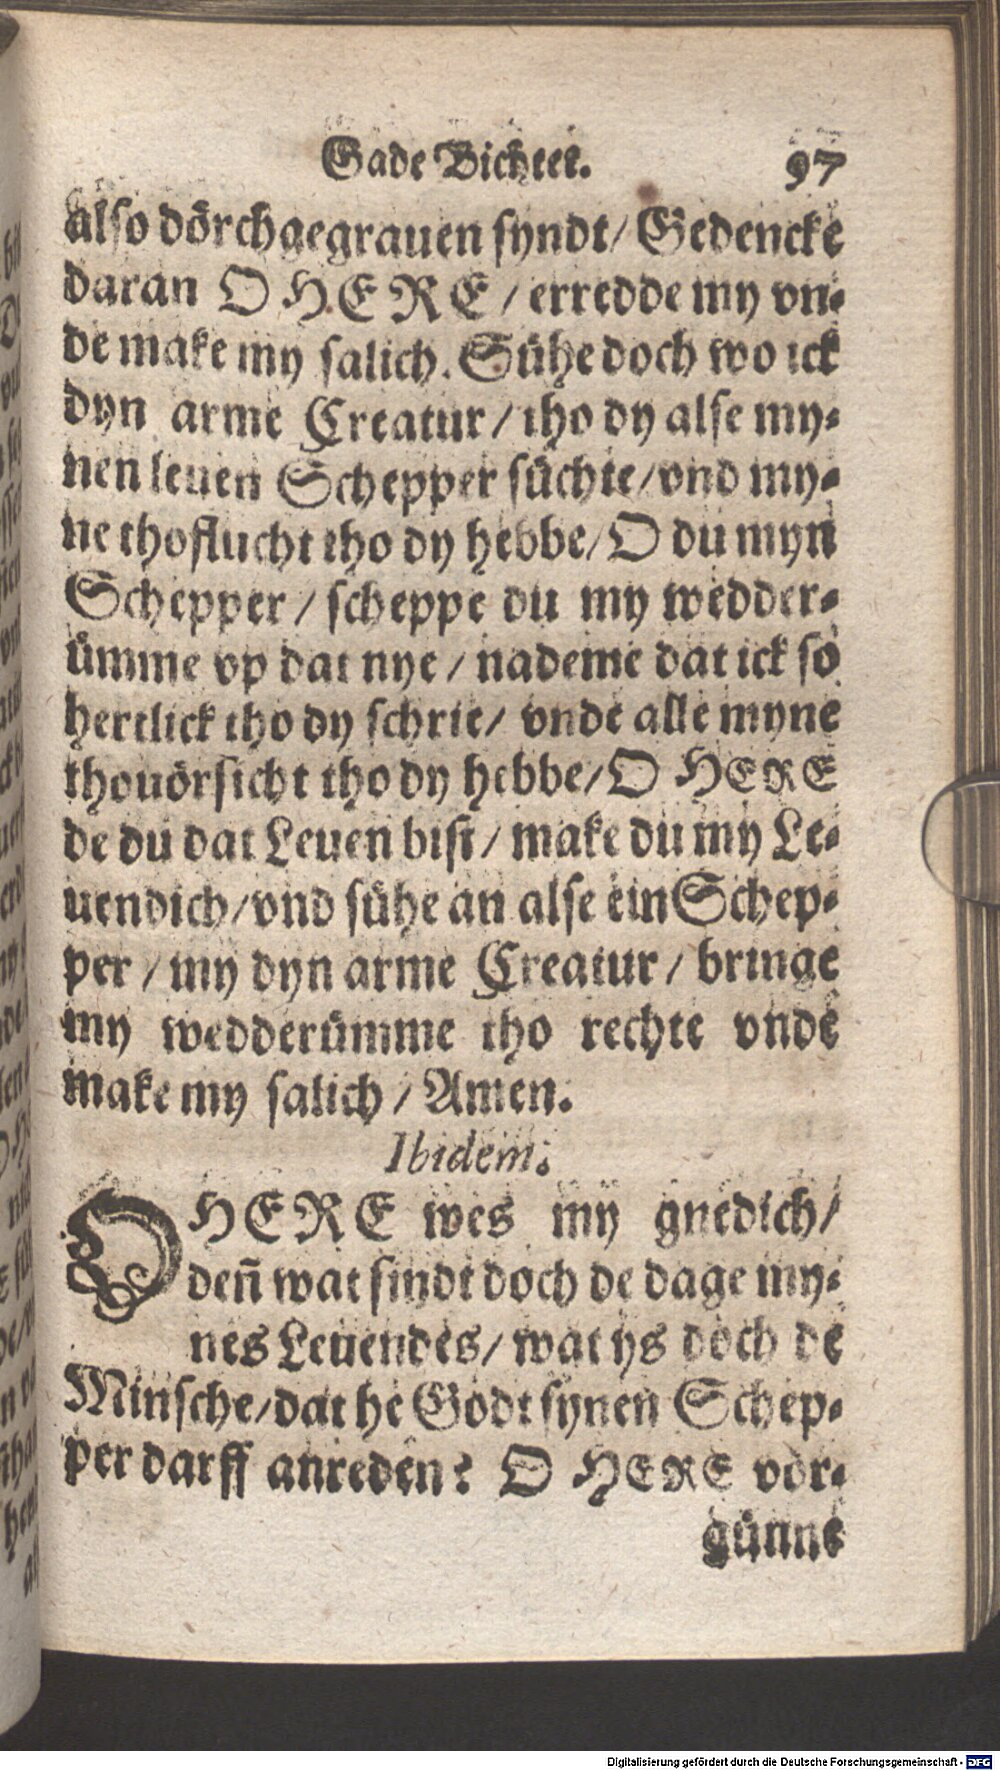 Gade Bichtet. 97
also dörchgegrauen syndt/ Gedencke
daran O HERE/ erredde my vn-
de make my salich. Sühe doch wo ick
dyn arme Creatur/ tho dy alse my-
nen leuen Schepper süchte/ vnd my-
ne thoflucht tho dy hebbe/ O du myn
Schepper/ scheppe du my wedder-
ümme vp dat nye/ nademe dat ick so
hertlick tho dy schrie/ vnde alle myne
thouörsicht tho dy hebbe/ O HERE
de du dat Leuen bist/ make du my Le-
uendich/ vnd sühe an alse ein Schep-
per/ my dyn arme Creatur/ bringe
my wedderümme tho rechte vnde
make my salich/ Amen.
Ibidem.
O HERE wes my gnedich/
deñ wat sindt doch de dage my-
nes Leuendes/ wat ys doch de
Minsche/ dat he Godt synen Schep-
per darff anreden? O HERE vör-
günne
Digitalisierung gefördert durch die Deutsche Forschungsgemeinschaft - DFG